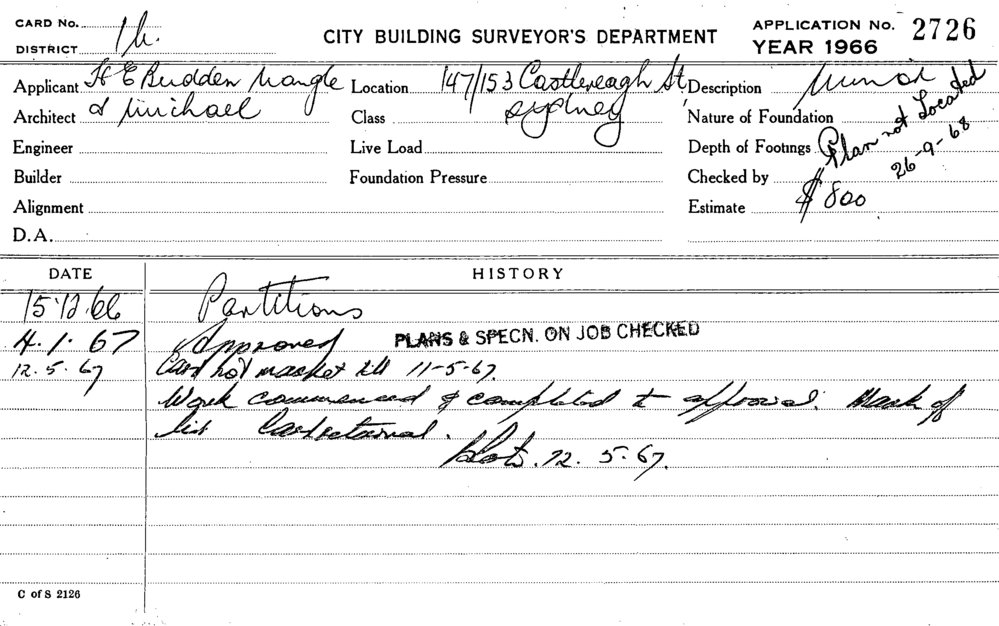 CARD No.
DISTRICT 1h.
CITY BUILDING SURVEYOR'S DEPARTMENT
APPLICATION No. 2726
YEAR 1966
Applicant H E Budden Nangle
Location 147/153 Castlereagh St
Sydney
Description Minor
Architect & Michael
Class
Nature of Foundation
Engineer
Live Load
Depth of Footings
Plan not Located
26-9-68
Builder
Foundation Pressure
Checked by
Alignment
Estimate $800
D.A.
DATE
HISTORY
15.12.66 Partitions
4.1.67 Approved PLANS & SPECN. ON JOB CHECKED
12.5.67 Card not marked till 11-5-67.
Work commenced & completed to approval. Mark of
12.5.67.
C of S 2126